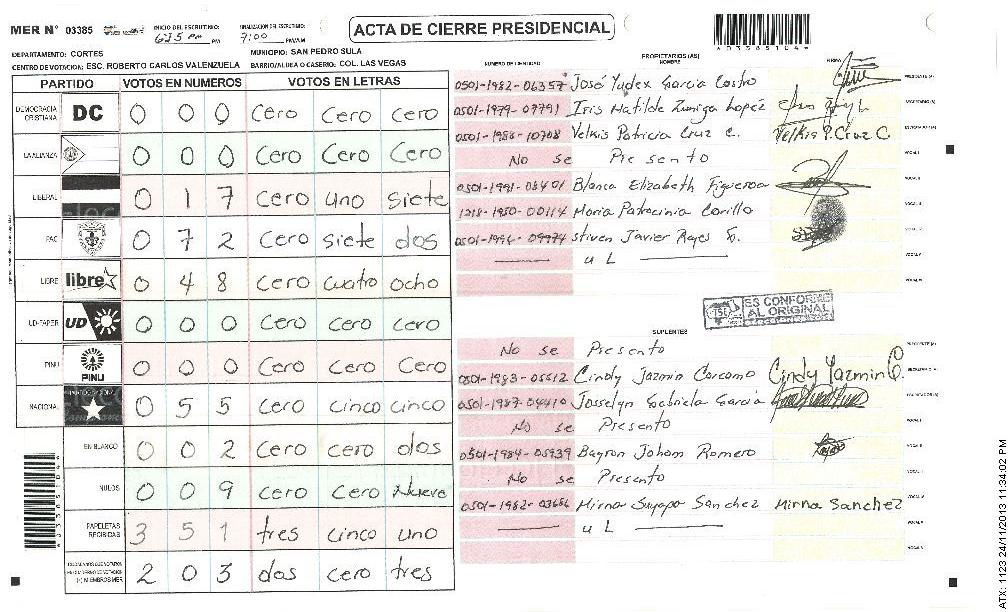 MER N° 03385
INICIO DEL ESCRUTINIO: 6:25 PM PM
FINALIZACION DEL ESCRUTINIO: 7:00 PM/AM
ACTA DE CIERRE PRESIDENCIAL
DEPARTAMENTO: CORTES
MUNICIPIO: SAN PEDRO SULA
CENTRO DE VOTACION: ESC. ROBERTO CARLOS VALENZUELA
BARRIO/ALDEA O CASERIO: COL. LAS VEGAS
PARTIDO VOTOS EN NUMEROS VOTOS EN LETRAS
DEMOCRACIA CRISTIANA DC 0 0 0 Cero Cero Cero
LA ALIANZA 0 0 0 Cero Cero Cero
LIBERAL 0 1 7 Cero uno siete
PAC 0 7 2 Cero siete dos
LIBRE libre 0 4 8 Cero cuatro ocho
UD-FAPER UD 0 0 0 Cero Cero cero
PINU PINU 0 0 0 Cero Cero Cero
NACIONAL 0 5 5 Cero cinco cinco
EN BLANCO 0 0 2 Cero cero dos
NULOS 0 0 9 Cero Cero Nueve
PAPELETAS RECIBIDAS 3 5 1 tres cinco uno
(+) MIEMBROS MER 2 0 3 dos cero tres
NUMERO DE IDENTIDAD
PROPIETARIOS (AS)
NOMBRE
FIRMA
0501-1982-06357 José Yudex Garcia Castro
0501-1979-09791 Iris Matilde Zuniga Lopez
0501-1988-10708 Velkis Patricia Cruz C. Velkis P. Cruz C.
No se Presento
0501-1991-08401 Blanca Elizabeth Figueroa
1218-1950-00114 Maria Patrocinia Carillo
0501-1994-09974 Stiven Javier Reyes
u L
TSE ES CONFORME AL ORIGINAL
SUPLENTES
No se Presento
0501-1983-05512 Cindy Jazmin Carcamo Cindy Yazmin C.
0501-1987-04410 Josselyn Gabriela Garcia
No se Presento
0501-1984-05939 Bayron Joham Romero
No se Presento
0501-1982-03686 Mirna Suyapa Sanchez Mirna Sanchez
u L
ATX: 1123 24/11/2013 11:34:02 PM